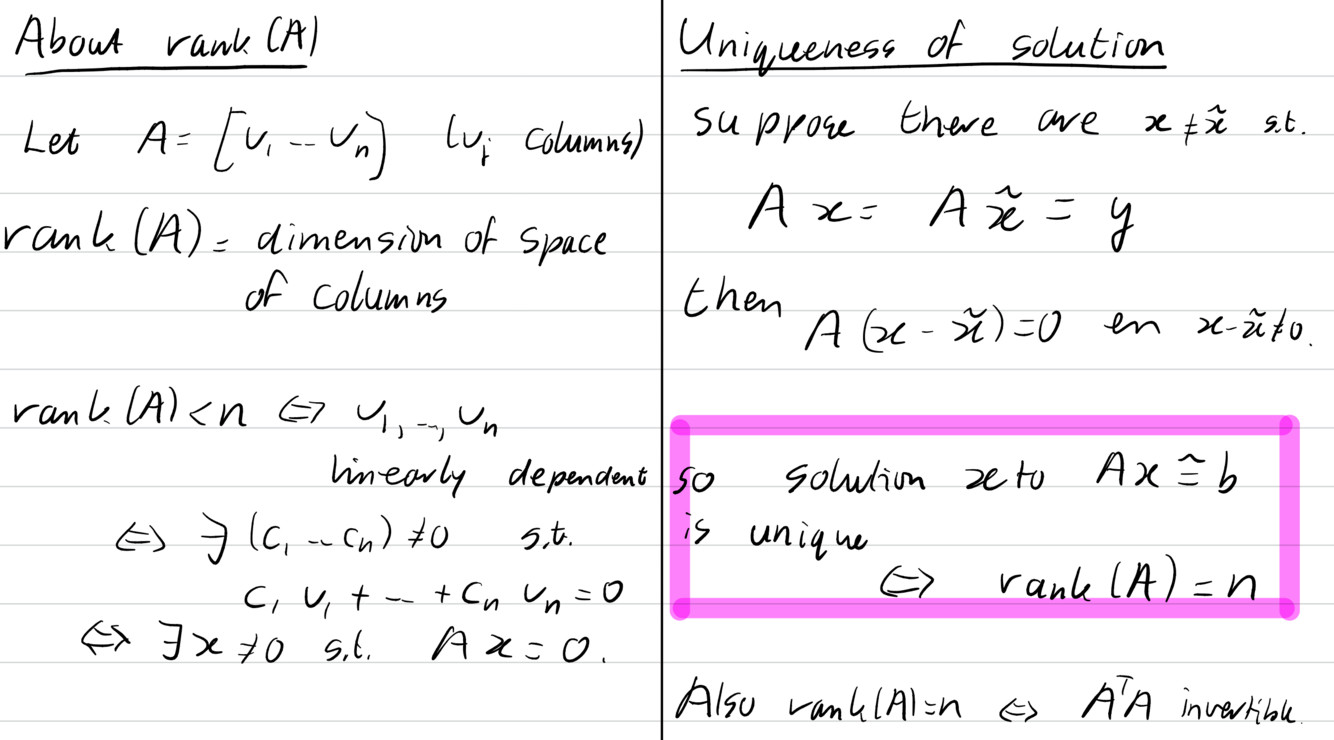 About rank (A)
Let A = [v₁ --- vₙ] (vⱼ columns)
rank (A) = dimension of space
of columns
rank (A) < n ⇔ v₁, --, vₙ
linearly dependent
⇔ ∃ (c₁ -- cₙ) ≠ 0 s.t.
c₁ v₁ + -- + cₙ vₙ = 0
⇔ ∃ x ≠ 0 s.t. A x = 0.
Uniqueness of solution
suppose there are x ≠ x̃ s.t.
A x = A x̃ = y
then
A (x - x̃) = 0 en x - x̃ ≠ 0.
so solution x to Ax ≅ b
is unique
⇔ rank (A) = n
Also rank (A) = n ⇔ AᵀA invertible.